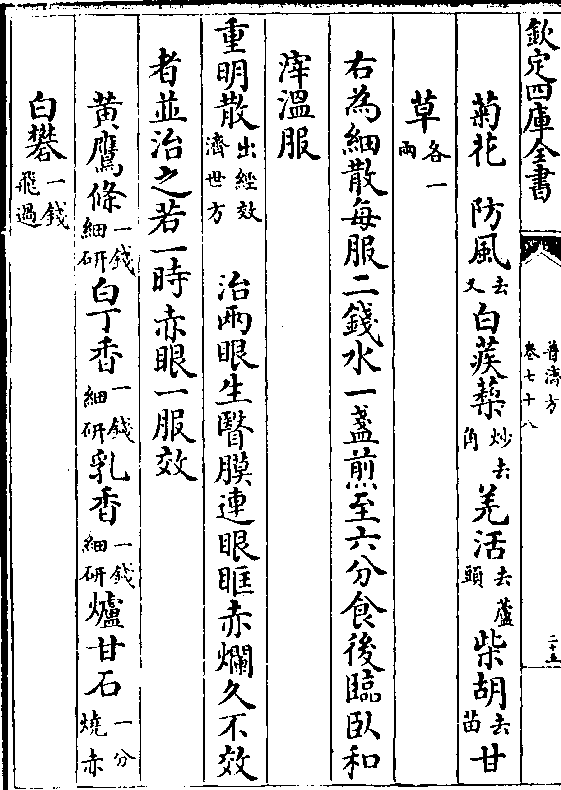 欽定四庫全書
普濟方
卷七十八
二十五
菊花 防風去叉白蒺䔧炒去角羌活去蘆頭柴胡去苗甘
草各一兩
右為細散每服二錢水一盞煎至六分食後臨臥和
滓溫服
重明散出經效濟世方 治兩眼生翳膜連眼眶赤爛久不效
者並治之若一時赤眼一服效
黃鷹條一錢細研白丁香一錢細研乳香一錢細研爐甘石一分燒赤
白礬一錢飛過